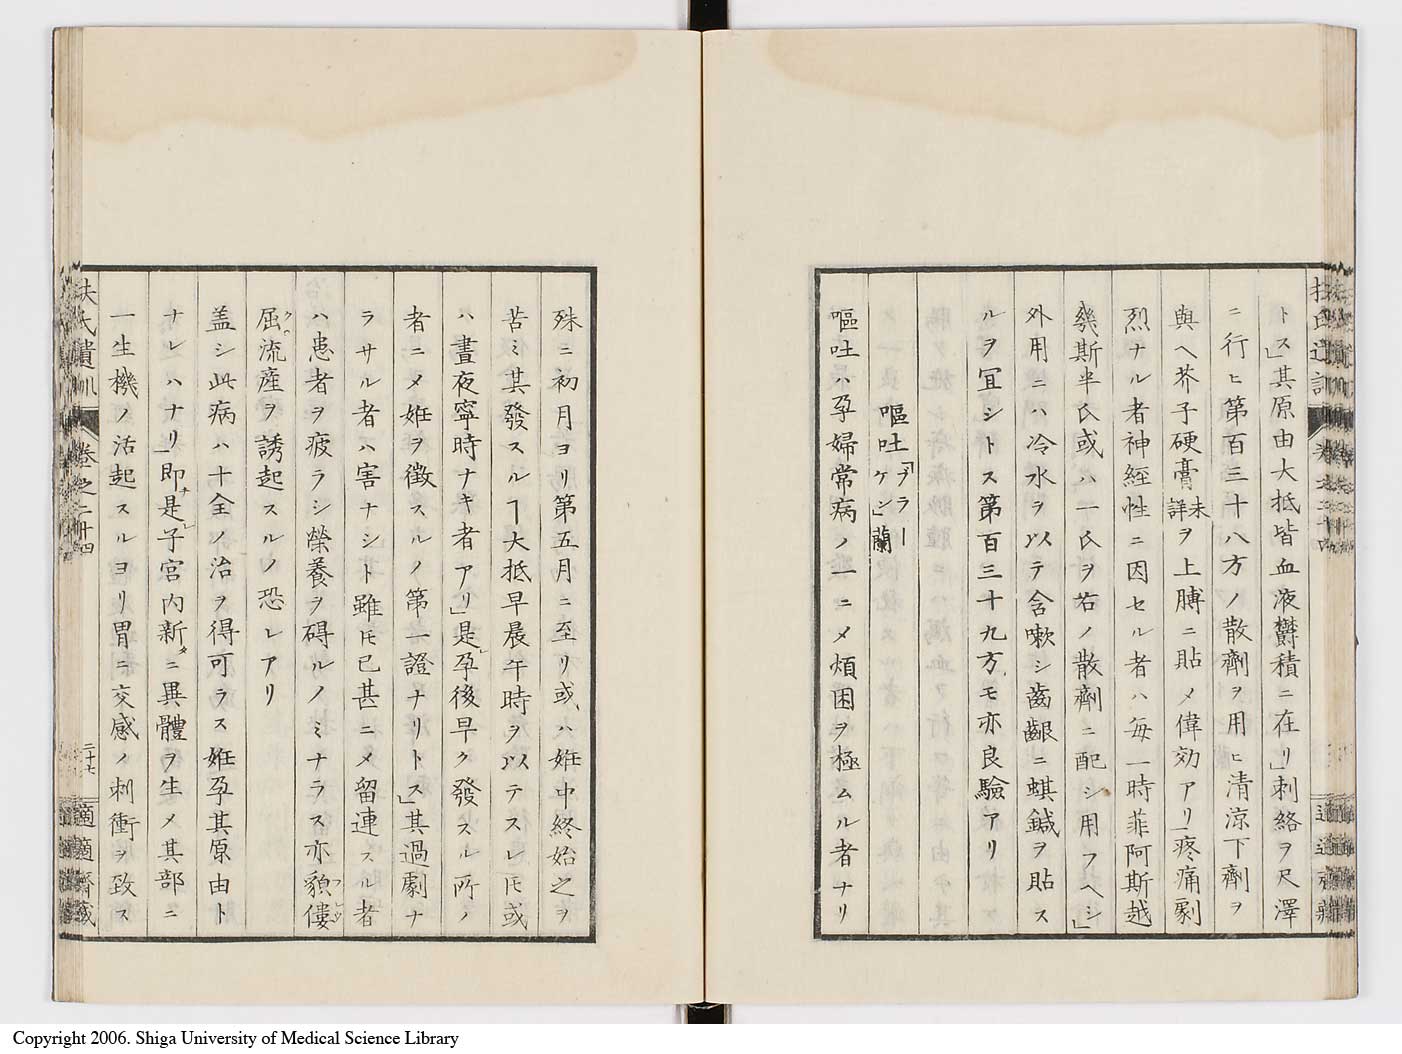 トス」其原由大抵皆血液欝積ニ在リ」刺絡ヲ尺澤
ニ行ヒ第百三十八方ノ散劑ヲ用ヒ清涼下劑ヲ
與ヘ芥子硬膏未詳ヲ上膊ニ貼メ偉効アリ」疼痛劇
烈ナル者神経性ニ因セル者ハ毎一時菲阿斯越
幾斯半氏或ハ一氏ヲ若ノ散劑ニ配シ用フヘシ」
外用ニハ冷水ヲ以テ含嗽シ齒齦ニ蜞鍼ヲ貼ス
ルヲ冝シトス第百三十九方モ亦良驗アリ
嘔吐「ブラーケン」蘭
嘔吐ハ孕婦常病ノ一ニメ煩困ヲ極ムル者ナリ
殊ニ初月ヨリ第五月ニ至リ或ハ姙中終始之ヲ
苦ミ其發スルヿ大抵早晨午時ヲ以テスレ𪜈或
ハ晝夜寧時ナキ者アリ」是レ孕後早ク發スル所ノ
者ニメ姙ヲ徴スルノ第一證ナリトス」其過劇ナ
ラサル者ハ害ナシト雖𪜈已甚ニメ留連スル者
ハ患者ヲ疲ラシ榮養ヲ碍ルノミナラス亦貌僂
屈流産ヲ誘起スルノ恐レアリ
盖シ此病ハ十全ノ治ヲ得可ラス姙孕其原由ト
ナレハナリ」即是レ子宮内新タニ異體ヲ生メ其部ニ
一生機ノ活起スルヨリ胃ニ交感ノ刺衝ヲ致ス
扶氏遺訓
巻之二十四
二十七
適適齋藏